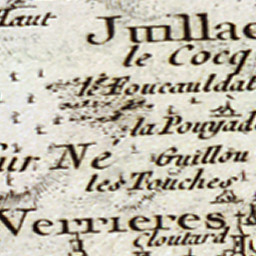 Haut
Juillac
le Cocq
le Foucauldat
la Pouyade
sur Né
Guillou
les Touches
Verrieres
Cloutard